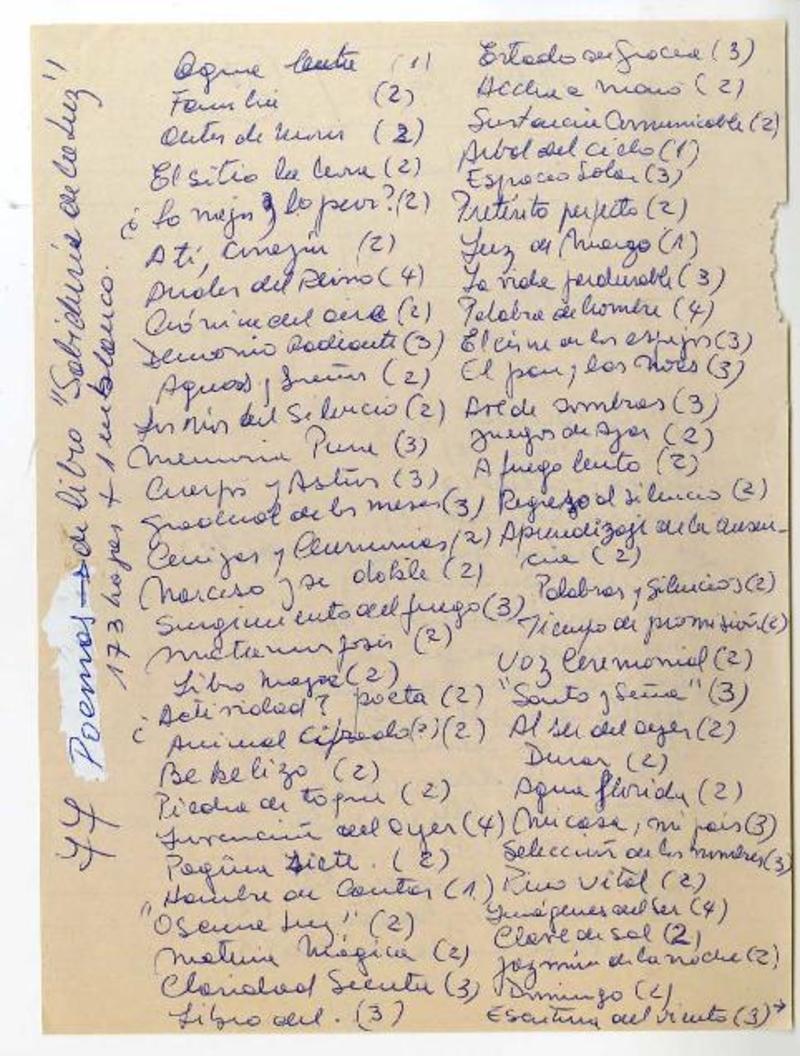 77 Poemas → de libro "Sabiduría de la Luz"
173 hojas + 1 en blanco.
Agua (1)
Familia (2)
Antes de morir (2)
El sitio la (2)
¿Lo mejor y lo peor? (2)
A ti, corazón (2)
Anales del Reino (4)
Crónica del aire (2)
Demonio Radiante (3)
Aguas y Sueños (2)
Los Ríos del Silencio (2)
Memoria Pura (3)
Cuerpos y Astros (3)
Gradual de los meses (3)
Cenizas y Ceremonias (2)
Narciso y se doble (2)
Surgimiento del fuego (3)
Metamorfosis (2)
Libro (2)
¿Actividad? poeta (2)
Animal Cifrado(?) (2)
(2)
Piedra de toque (2)
Invención del Ayer (4)
Pagina siete. (2)
Hombre de Cantos (1)
"Oscura Luz" (2)
Materia Mágica (2)
Claridad Secreta (3)
Libro del. (3)
Estado de Gracia (3)
a mano (2)
Sustancia Comunicable (2)
Arbol del cielo (1)
Espacio Solar (3)
Pretérito perfecto (2)
Luz de Marzo (1)
La vida perdurable (3)
Palabra de hombre (4)
El cisne en los espejos (3)
El pan y los (3)
Ave de sombras (3)
Juegos de Azar (2)
A fuego lento (2)
Regreso al silencio (2)
Aprendizaje de la ausen-
cia (2)
Palabras y Silencios (2)
Tiempo de promisión (2)
Voz Ceremonial (2)
"Santo y Seña" (3)
Al ser del ayer (2)
Durar (2)
Agua florida (2)
Mi casa, mi país (3)
Selección de los nombres (3)
Vital (2)
Imágenes del Ser (4)
Clave de sol (2)
Jazmín de la noche (2)
Domingo (2)
Escritura del viento (3) →